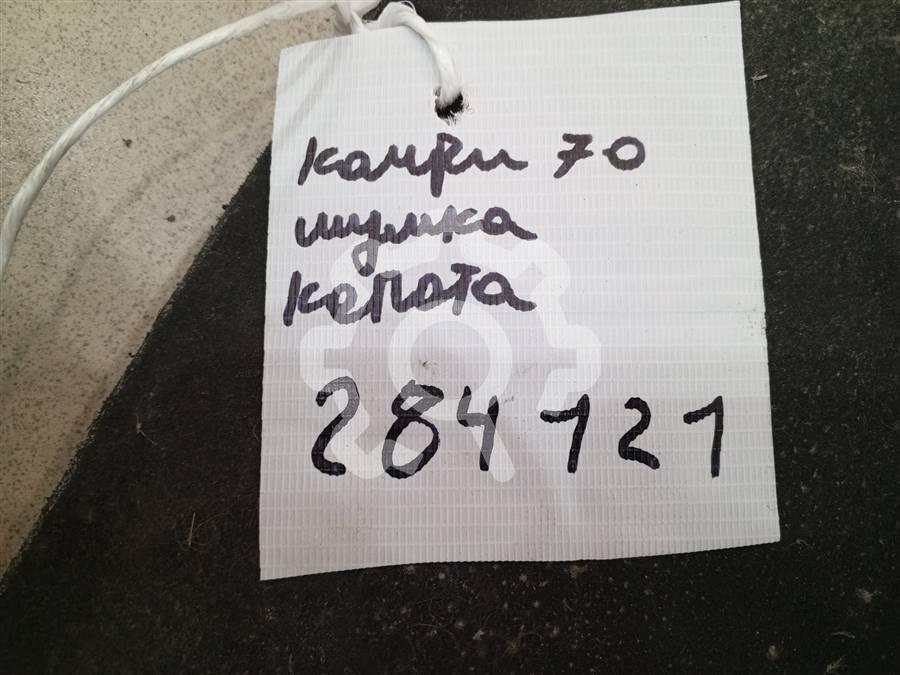 камри 70
шумка
капота
284121